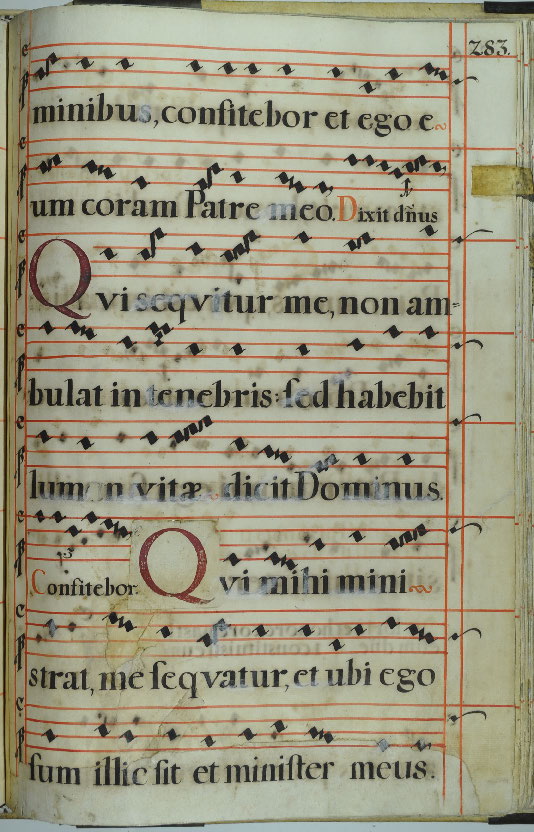 283.
minibus, confitebor et ego e
um coram Patre meo. Dixit dñus
Qvi seqvitur me, non am=
bulat in tenebris: sed habebit
lumen vitæ dicit Dominus.
Confitebor. Qvi mihi mini
strat, me seqvatur, et ubi ego
sum illic sit et minister meus.